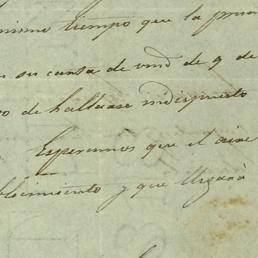 mismo tiempo que la
su carta de vmd de 9 de
de hallarse indispuesto
Esperamos que el aire
y que llegará